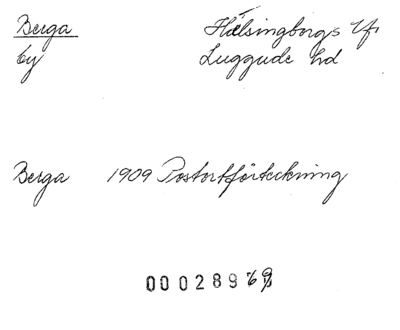 Berga Hälsingborgs lfs
by Luggude hd
Berga 1909 Postortförteckning
00028969